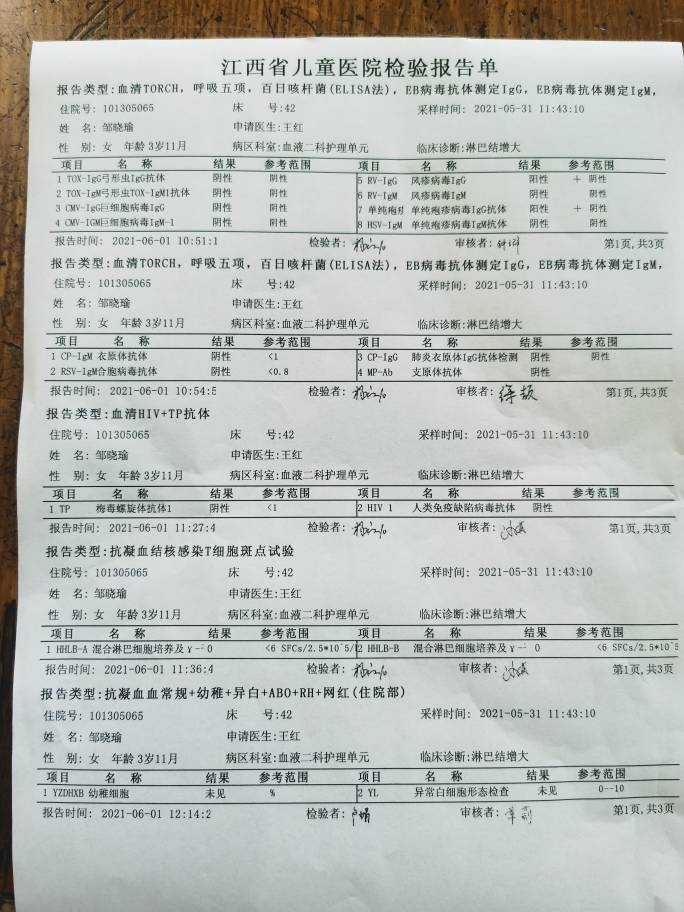 江西省儿童医院检验报告单
报告类型:血清TORCH, 呼吸五项, 百日咳杆菌(ELISA法), EB病毒抗体测定IgG, EB病毒抗体测定IgM,
住院号: 101305065 床 号:42 采样时间: 2021-05-31 11:43:10
姓 名: 邹晓瑜 申请医生:王红
性 别: 女 年龄 3岁11月 病区科室:血液二科护理单元 临床诊断:淋巴结增大
项目 名 称 结果 参考范围 项目 名 称 结果 参考范围
1 TOX-IgG弓形虫IgG抗体 阴性 阴性 5 RV-IgG 风疹病毒IgG 阳性 + 阴性
2 TOX-IgM弓形虫TOX-IgM1抗体 阴性 阴性 6 RV-IgM 风疹病毒IgM 阴性 阴性
3 CMV-IgG巨细胞病毒IgG 阴性 阴性 7 单纯疱疹 单纯疱疹病毒IgG抗体 阳性 + 阴性
4 CMV-IGM巨细胞病毒IgM-1 阴性 阴性 8 HSV-IgM 单纯疱疹病毒IgM抗体 阴性 阴性
报告时间: 2021-06-01 10:51:1 检验者: 审核者: 第1页,共3页
报告类型:血清TORCH, 呼吸五项, 百日咳杆菌(ELISA法), EB病毒抗体测定IgG, EB病毒抗体测定IgM,
住院号: 101305065 床 号:42 采样时间: 2021-05-31 11:43:10
姓 名: 邹晓瑜 申请医生:王红
性 别: 女 年龄 3岁11月 病区科室:血液二科护理单元 临床诊断:淋巴结增大
项目 名 称 结果 参考范围 项目 名 称 结果 参考范围
1 CP-IgM 衣原体抗体 阴性 <1 3 CP-IgG 肺炎衣原体IgG抗体检测 阴性 阴性
2 RSV-IgM合胞病毒抗体 阴性 <0.8 4 MP-Ab 支原体抗体 阴性
报告时间: 2021-06-01 10:54:5 检验者: 审核者: 第1页,共3页
报告类型:血清HIV+TP抗体
住院号: 101305065 床 号:42 采样时间: 2021-05-31 11:43:10
姓 名: 邹晓瑜 申请医生:王红
性 别: 女 年龄 3岁11月 病区科室:血液二科护理单元 临床诊断:淋巴结增大
项目 名 称 结果 参考范围 项目 名 称 结果 参考范围
1 TP 梅毒螺旋体抗体1 阴性 <1 2 HIV 1 人类免疫缺陷病毒抗体 阴性
报告时间: 2021-06-01 11:27:4 检验者: 审核者: 第1页,共3页
报告类型:抗凝血结核感染T细胞斑点试验
住院号: 101305065 床 号:42 采样时间: 2021-05-31 11:43:10
姓 名: 邹晓瑜 申请医生:王红
性 别: 女 年龄 3岁11月 病区科室:血液二科护理单元 临床诊断:淋巴结增大
项目 名 称 结果 参考范围 项目 名 称 结果 参考范围
1 HHLB-A 混合淋巴细胞培养及γ-干 0 <6 SFCs/2.5*10^5/ 2 HHLB-B 混合淋巴细胞培养及γ-干 0 <6 SFCs/2.5*10^5
报告时间: 2021-06-01 11:36:4 检验者: 审核者: 第1页,共3页
报告类型:抗凝血血常规+幼稚+异白+ABO+RH+网红(住院部)
住院号: 101305065 床 号:42 采样时间: 2021-05-31 11:43:10
姓 名: 邹晓瑜 申请医生:王红
性 别: 女 年龄 3岁11月 病区科室:血液二科护理单元 临床诊断:淋巴结增大
项目 名 称 结果 参考范围 项目 名 称 结果 参考范围
1 YZDHXB 幼稚细胞 未见 % 2 YL 异常白细胞形态检查 未见 0--10
报告时间: 2021-06-01 12:14:2 检验者: 审核者: 第1页,共3页